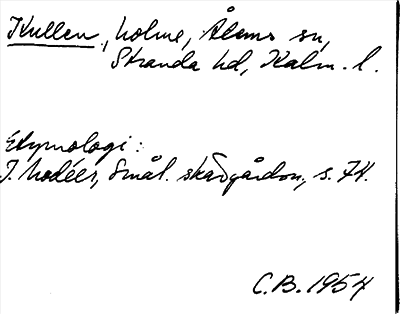 Kullen, holme, Ålems sn,
Stranda hd, Kalm. l.
Etymologi:
J. Modéer, Smål. skärgårdsn., s. 74.
C.B. 1954